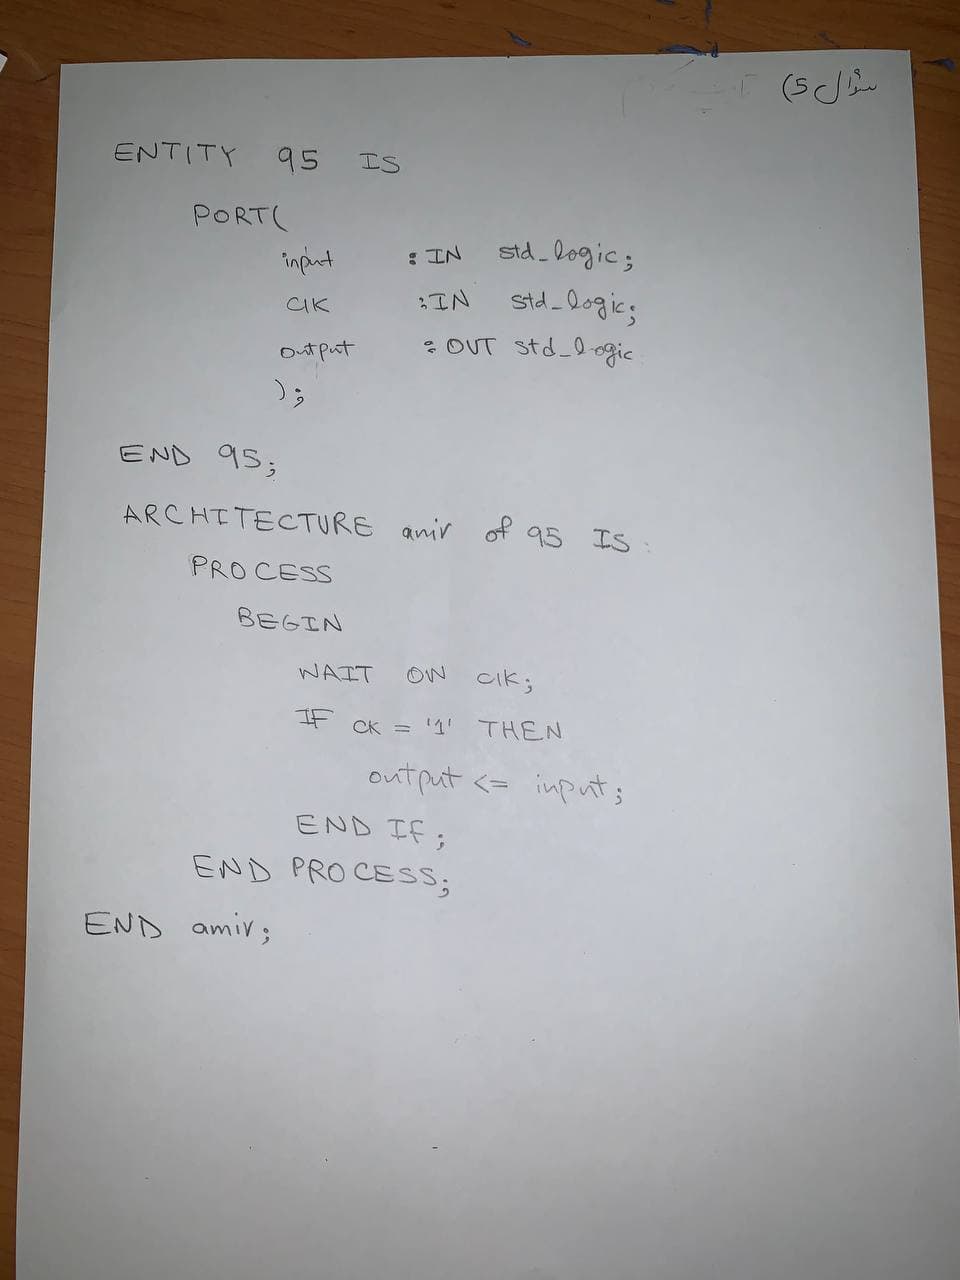 سؤال 5)
ENTITY q5 IS
PORT(
input : IN std_logic;
clk : IN std_logic;
output : OUT std_logic
);
END q5;
ARCHITECTURE amir of q5 IS
PROCESS
BEGIN
WAIT ON clk;
IF ck = '1' THEN
output <= input;
END IF;
END PROCESS;
END amir;